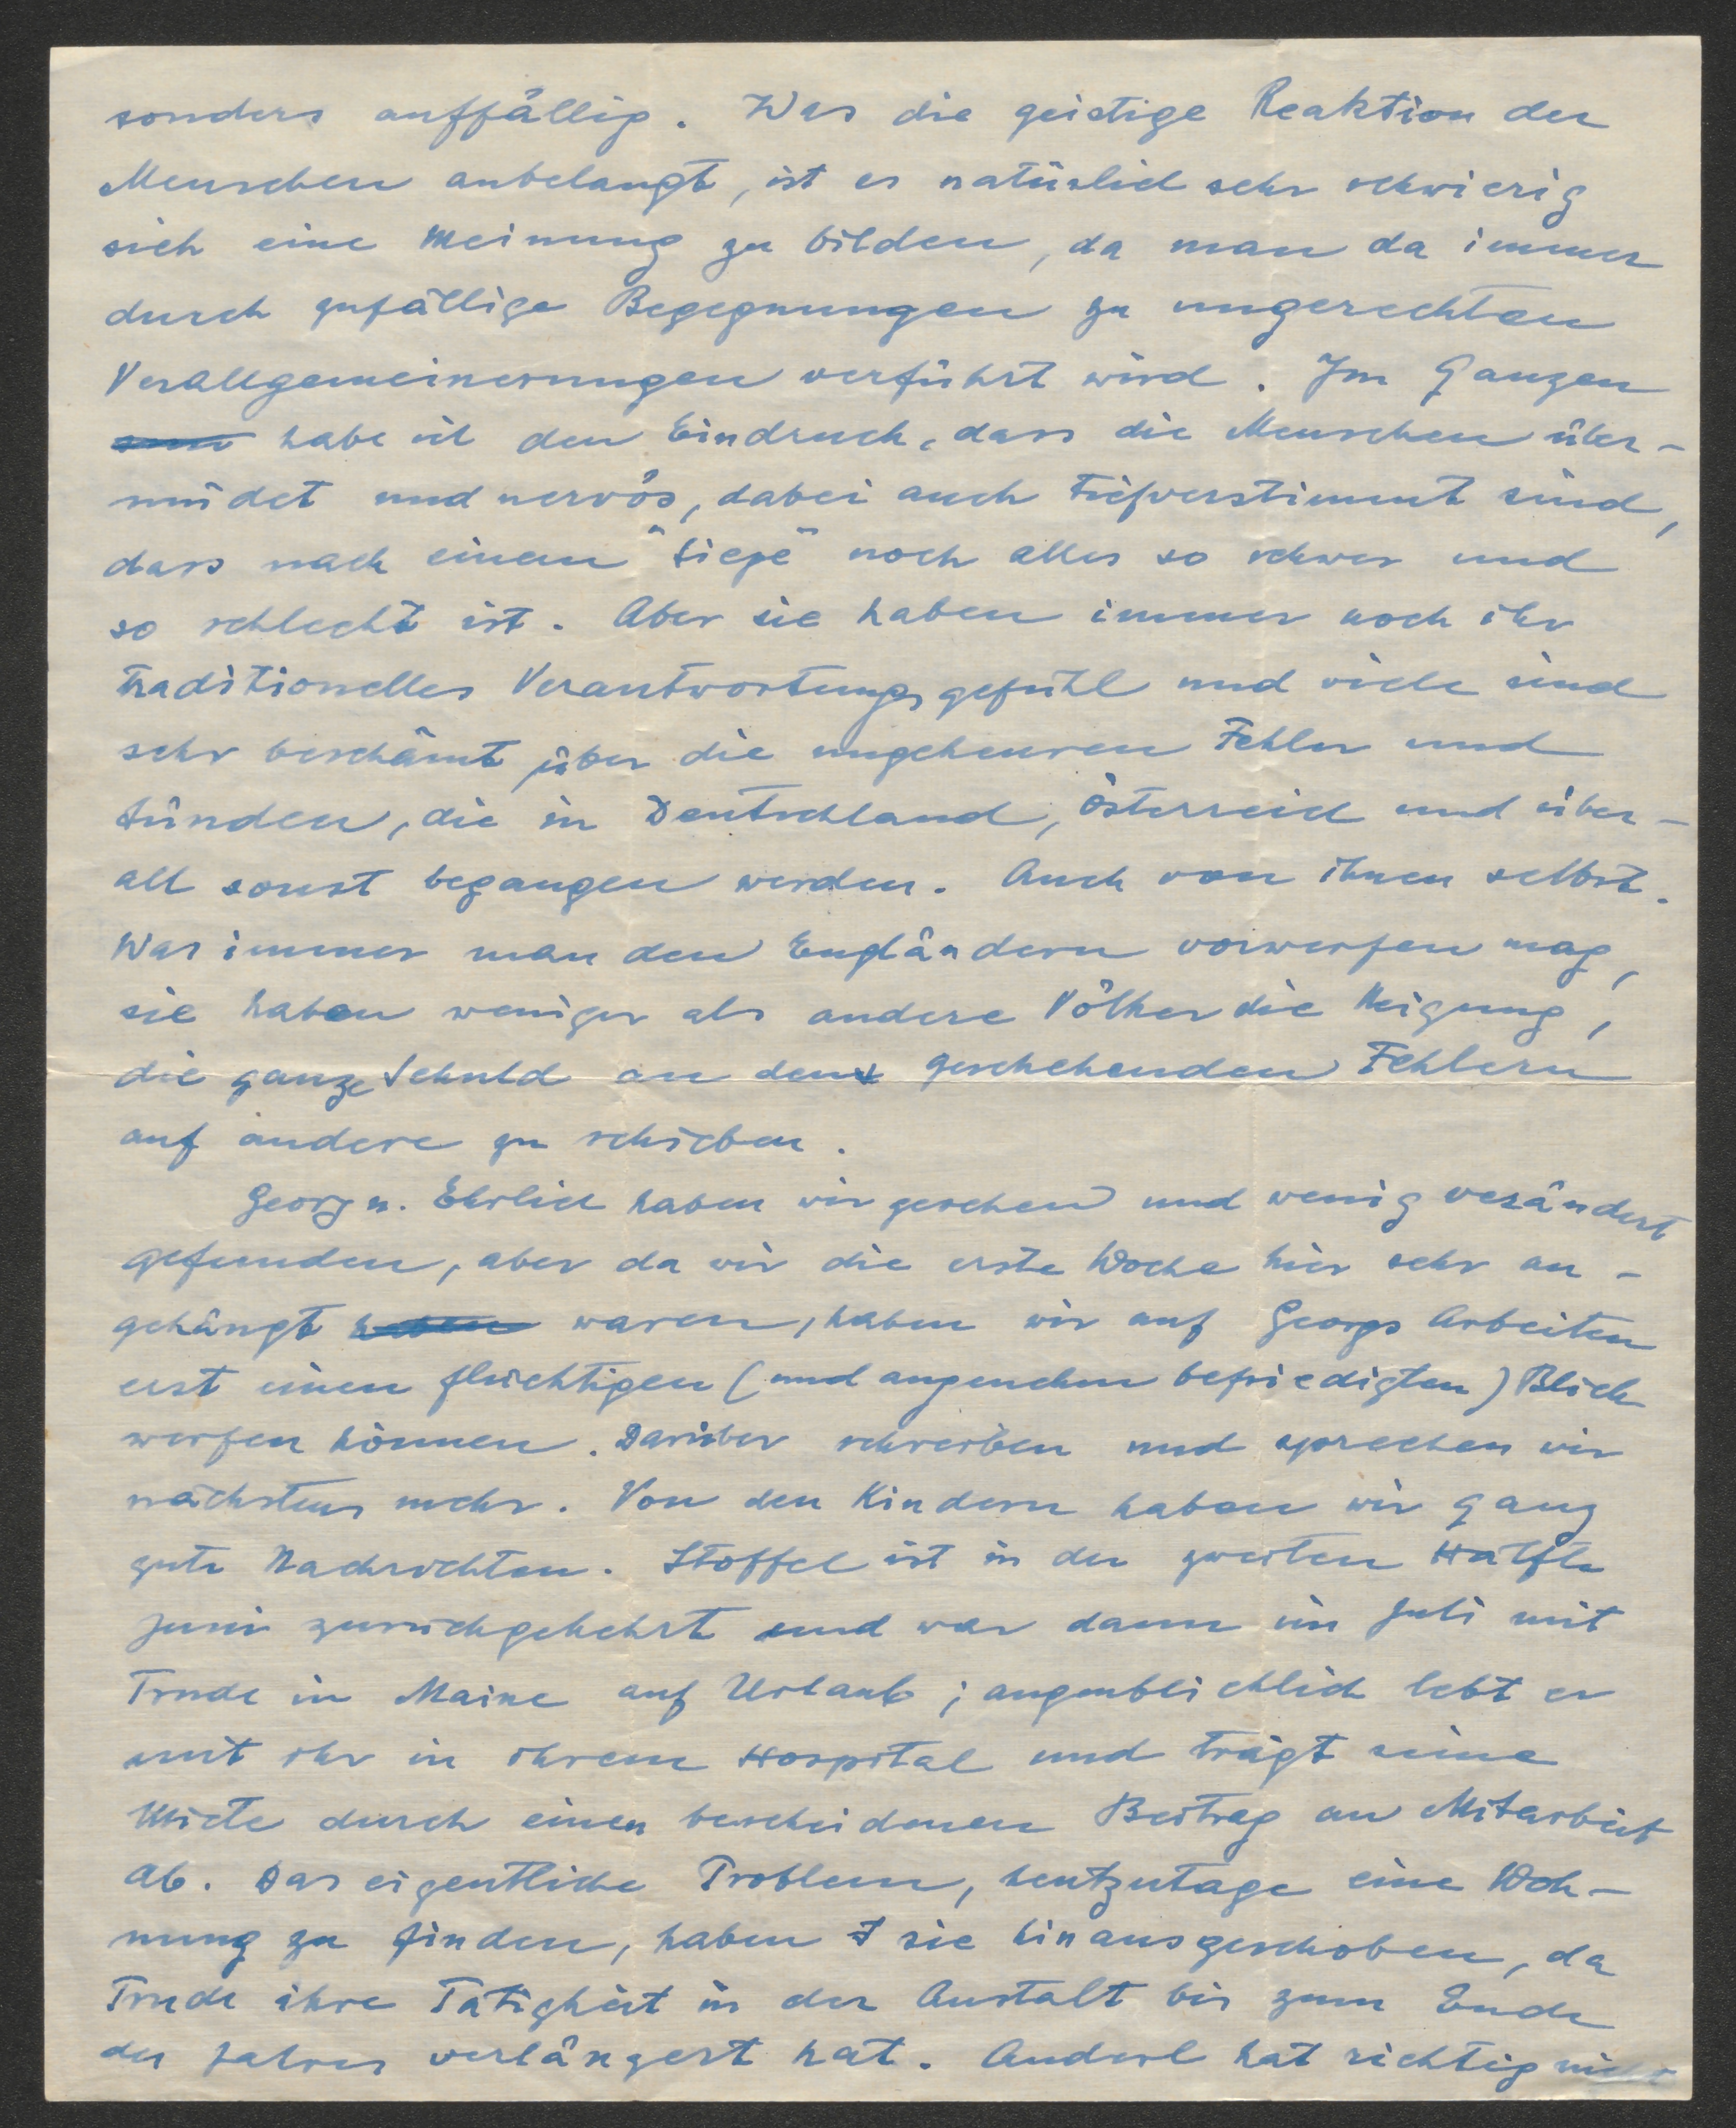 sonders auffällig. Was die geistige Reaktion der
Menschen anbelangt, ist es natürlich sehr schwierig
sich eine Meinung zu bilden, da man da immer
durch zufällige Begegnungen zu ungerechten
Verallgemeinerungen verführt wird. Im Ganzen
habe ich den Eindruck, dass die Menschen über-
müdet und nervös, dabei auch tiefverstimmt sind,
dass nach einem "Siege" noch alles so schwer und
so schlecht ist. Aber sie haben immer noch ihr
traditionelles Verantwortungsgefühl und viele sind
sehr beschämt über die ungeheuren Fehler und
Sünden, die in Deutschland, Österreich und über-
all sonst begangen werden. Auch von ihnen selbst.
Was immer man den Engländern vorwerfen mag,
sie haben weniger als andere Völker die Neigung,
die ganze Schuld an den geschehenden Fehlern
auf andere zu schieben.
Georg u. Ehrlich haben wir gesehen und wenig verändert
gefunden, aber da wir die erste Woche hier sehr an-
gehängt haben waren, haben wir auf Georgs Arbeiten
erst einen flüchtigen (und angenehm befriedigten) Blick
werfen können. Darüber schreiben und sprechen wir
nächstens mehr. Von den Kindern haben wir ganz
gute Nachrichten. Stoffel ist in der zweiten Hälfte
Juni zurückgekehrt und war dann im Juli mit
Trude in Maine auf Urlaub; augenblicklich lebt er
mit ihr in ihrem Hospital und trägt seine
Miete durch einen bescheidenen Beitrag an Mitarbeit
ab. Das eigentliche Problem, heutzutage eine Woh-
nung zu finden, haben sie hinausgeschoben, da
Trude ihre Tätigkeit in der Anstalt bis zum Ende
des Jahres verlängert hat. Anderl hat richtig nicht